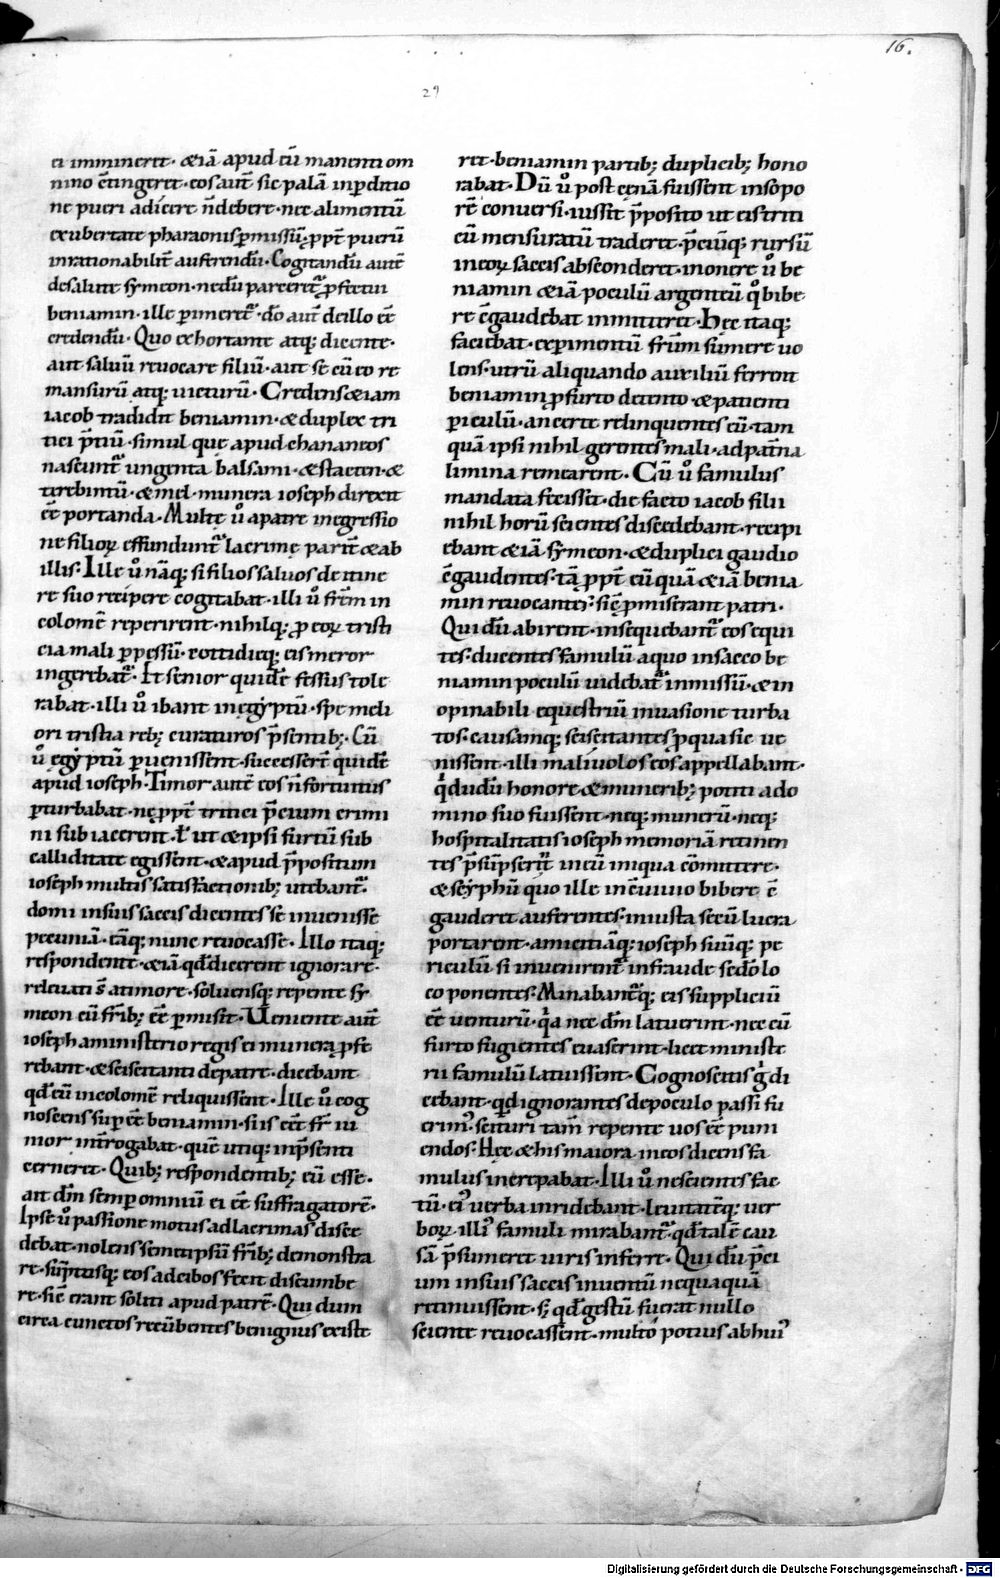 16.
29
ei immineret· &iā apud eū manenti om
nino c̄tingeret· eos aut̄ sic palā inp̱ditio
ne pueri adicere n̄debere· nec alimentū
exubertate pharaonis p̱missū, ꝓpt̄ puerū
inrationabilit̄ auferendū· Cogitandū autē
desalute symeon· nedū pareeret᷑ ꝓfectui
beniamin· ille p̱imeret᷑· dō aut̄ deillo ēē
credendū· Quo exhortante atq; dicente·
aut saluū reuocare filiū· aut se cū eo re
mansurū atq; uicturū· Credens &iam
iacob tradidit beniamin· & duplex tri
tici p̄tiū· simul que apud chananeos
nascunt᷑ ungenta balsami· & stacten· &
terebintū· & mel· munera ioseph direxit
ēē portanda· Multę u̾ apatre inegressio
ne filioꝝ effundunt᷑ lacrimę parit̄ & ab
illis· Ille u̾ nāq; si filios saluos de itine
re suo recipere cogitabat· illi u̾ frēm in
colomē reperirent· nihilq; ꝓ eoꝝ tristi
cia mali p̱pessū· cottidieq; eis meror
ingerebat᷑· Et senior quidē fessus tole
rabat· illi u̾ ibant inęgyptū· spe meli
ori tristia reb; curaturos p̄sentib;· Cū
u̾ ęgyptū p̱uenissent· successert̄ quidē
apud ioseph· Timor autē eos n̄fortuitus
p̱turbabat· nę ꝓpt̄ tritici p̄cium crimi
ni sub iacerent· ł ut & ipsi furtū sub
calliditate egissent· & apud p̄positum
ioseph multis satisfactionib; utebant᷑·
domi insuis saccis dicentes sē inuenisse
pecuniā· eāq; nunc reuocasse· Illo itaq;
respondente· &iā qd̄ dicerent ignorare·
releuati s̄ atimore· soluensq; repente sy
meon cū frīb; ēē p̱misit· Ueniente aut̄
ioseph aministerio regis ei munera ꝓfe
rebant· & sciscitanti depatre· dicebant
qd̄ eū incolomē reliquissent· Ille u̾ cog
noscens sup̱ ēē beniamin· si is eēt fr̄ iu
nior int̄rogabat· quē utiq; inp̄senti
cerneret· Quib; respondentib; eū esse·
ait dm̄ semp̱ omniū ei ēē suffragatorē·
Ipse u̾ passione motus adlacrimas disce
debat· nolens semetipsū frīb; demonstra
re· sūptisq; eos adcibos fecit discumbe
re· sic̄ erant soliti apud patrē· Qui dum
circa cunctos recūbentes benignus existe
ret· beniamin partib; duplicib; hono
rabat· Dū u̾ post cęnā fuissent insopo
rē conuersi· iussit p̄posito ut eis triti
cū mensuratū traderet· p̄ciūq; rursū
ineoꝝ saccis absconderet· inonere u̾ be
niamin &iā poculū argenteū q̊ bibe
re c̄gaudebat inmitteret· Hęc itaq;
faciebat· experimentū frūm sumere uo
lens· utrū aliquando auxiliū ferrent
beniamin ꝓ furto detento· & patienti
p̱iculū· an certe relinquentes eū· tam
quā ipsi nihil gerentes mali· adpat̄na
limina remearent· Cū u̾ famulus
mandata fecisset· die facto iacob filii
nihil horū scientes discedebant· recipi
ebant &iā symeon· & duplici gaudio
c̄gaudentes· tā ꝓpt̄ eū quā &iā benia
min reuocantes· sic̄ ꝓmiserant patri·
Qui dū abirent· insequebant᷑ eos equi
tes· ducentes famulū aquo insacco be
niamin poculū uidebat᷑ inmissū· & in
opinabili equestriū inuasione turba
tos· causamq; sciscitantes ꝓ qua sic ue
nissent· illi maliuolos eos appellabant·
q̇ dudū honore & munerib; potiti a do
mino suo fuissent· neq; munerū· neq;
hospitalitatis ioseph memoriā retinen
tes p̄sūpsert̄ ineū iniqua cōmittere·
& scyphū quo ille incūiuio bibere c̄
gauderet auferentes· iniusta secū lucra
portarent· amicitiāq; ioseph suūq; pe
riculū si inuenirent᷑ infraude sedo̅ lo
co ponentes· Minabant᷑q; eis suppliciū
ēē uenturū· q̇a nec dm̄ latuerint· nec cū
furto fugientes euaserint· licet ministe
rii famulū latuissent· Cognoscitis g̊ di
cebant· qd̄ ignorantes depoculo passi fu
erim᷒· scituri tam̄ repente uos ēē puni
endos· Hęc & his maiora ineos dicens fa
mulus increpabat· Illi u̾ nescientes fac
tū· ei᷒ uerba inridebant· leuitatēq; uer
boꝝ illi᷒ famuli mirabant᷑· qd̄ talē cau
sā p̄sumeret uiris inferre· Qui dū p̄ci
um insuis saccis inuentū nequaquā
retinuissent· s; qd̄ gestū fuerat nullo
sciente reuocassent· multo potius ab hui᷒
Digitalisierung gefördert durch die Deutsche Forschungsgemeinschaft - DFG